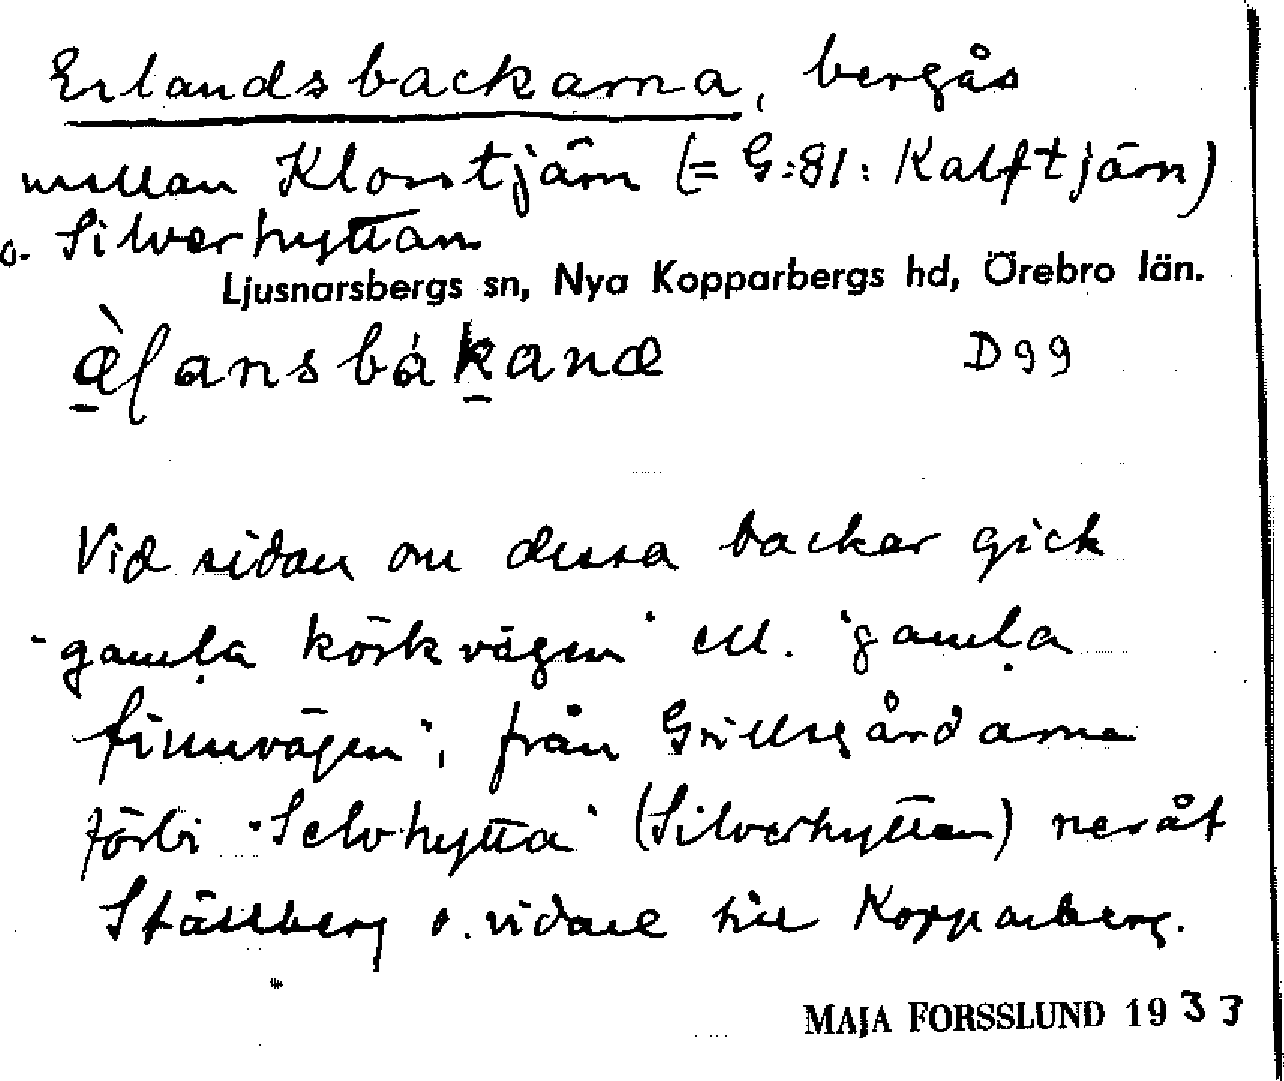 Erlandsbackarna, bergås
mellan Klosstjärn (= G:81: Kalftjärn)
o. Silverhyttan
Ljusnarsbergs sn, Nya Kopparbergs hd, Örebro län.
D 99
Vid sidan om dessa backar gick
"gamḷa körkvägen" ell. "gamḷa
finnvägen", från Grillsgårdarna
förbi "Selvhytta" (Silverhyttan) neråt
Ställberg o. vidare till Kopparberg.
MAJA FORSSLUND 1937